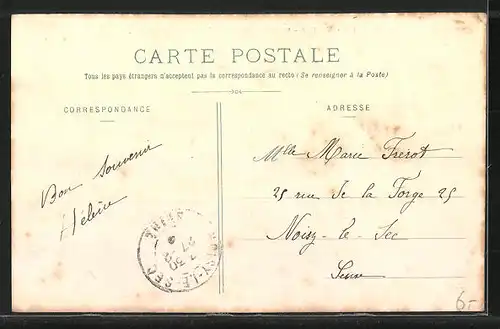 CARTE POSTALE
Tous les pays étrangers n'acceptent pas la correspondance au recto (Se renseigner à la Poste)
CORRESPONDANCE
ADRESSE
Bon Souvenir
Hélène
Mlle Marie Frérot
25 rue de la Forge 25
Noisy-le-Sec
Seine
NOISY-LE-SEC
SEINE
7 30
27
6-